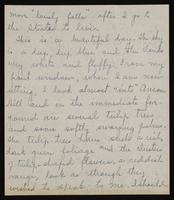 more "lovely falls" after I go to
the States to live.
This is a beautiful day. The sky
is a deep, deep blue and the clouds
very white and fluffy. From my
front window, where I am now
sitting, I look almost "into" Anson
Hill and in the immediate fore-
ground are several tulip trees
and some softly swaying palms.
The tulip trees have such a rich,
dark green foliage and the clusters
of tulip-shaped flowers, a reddish
orange, look as though they
wished to speak to me. I should